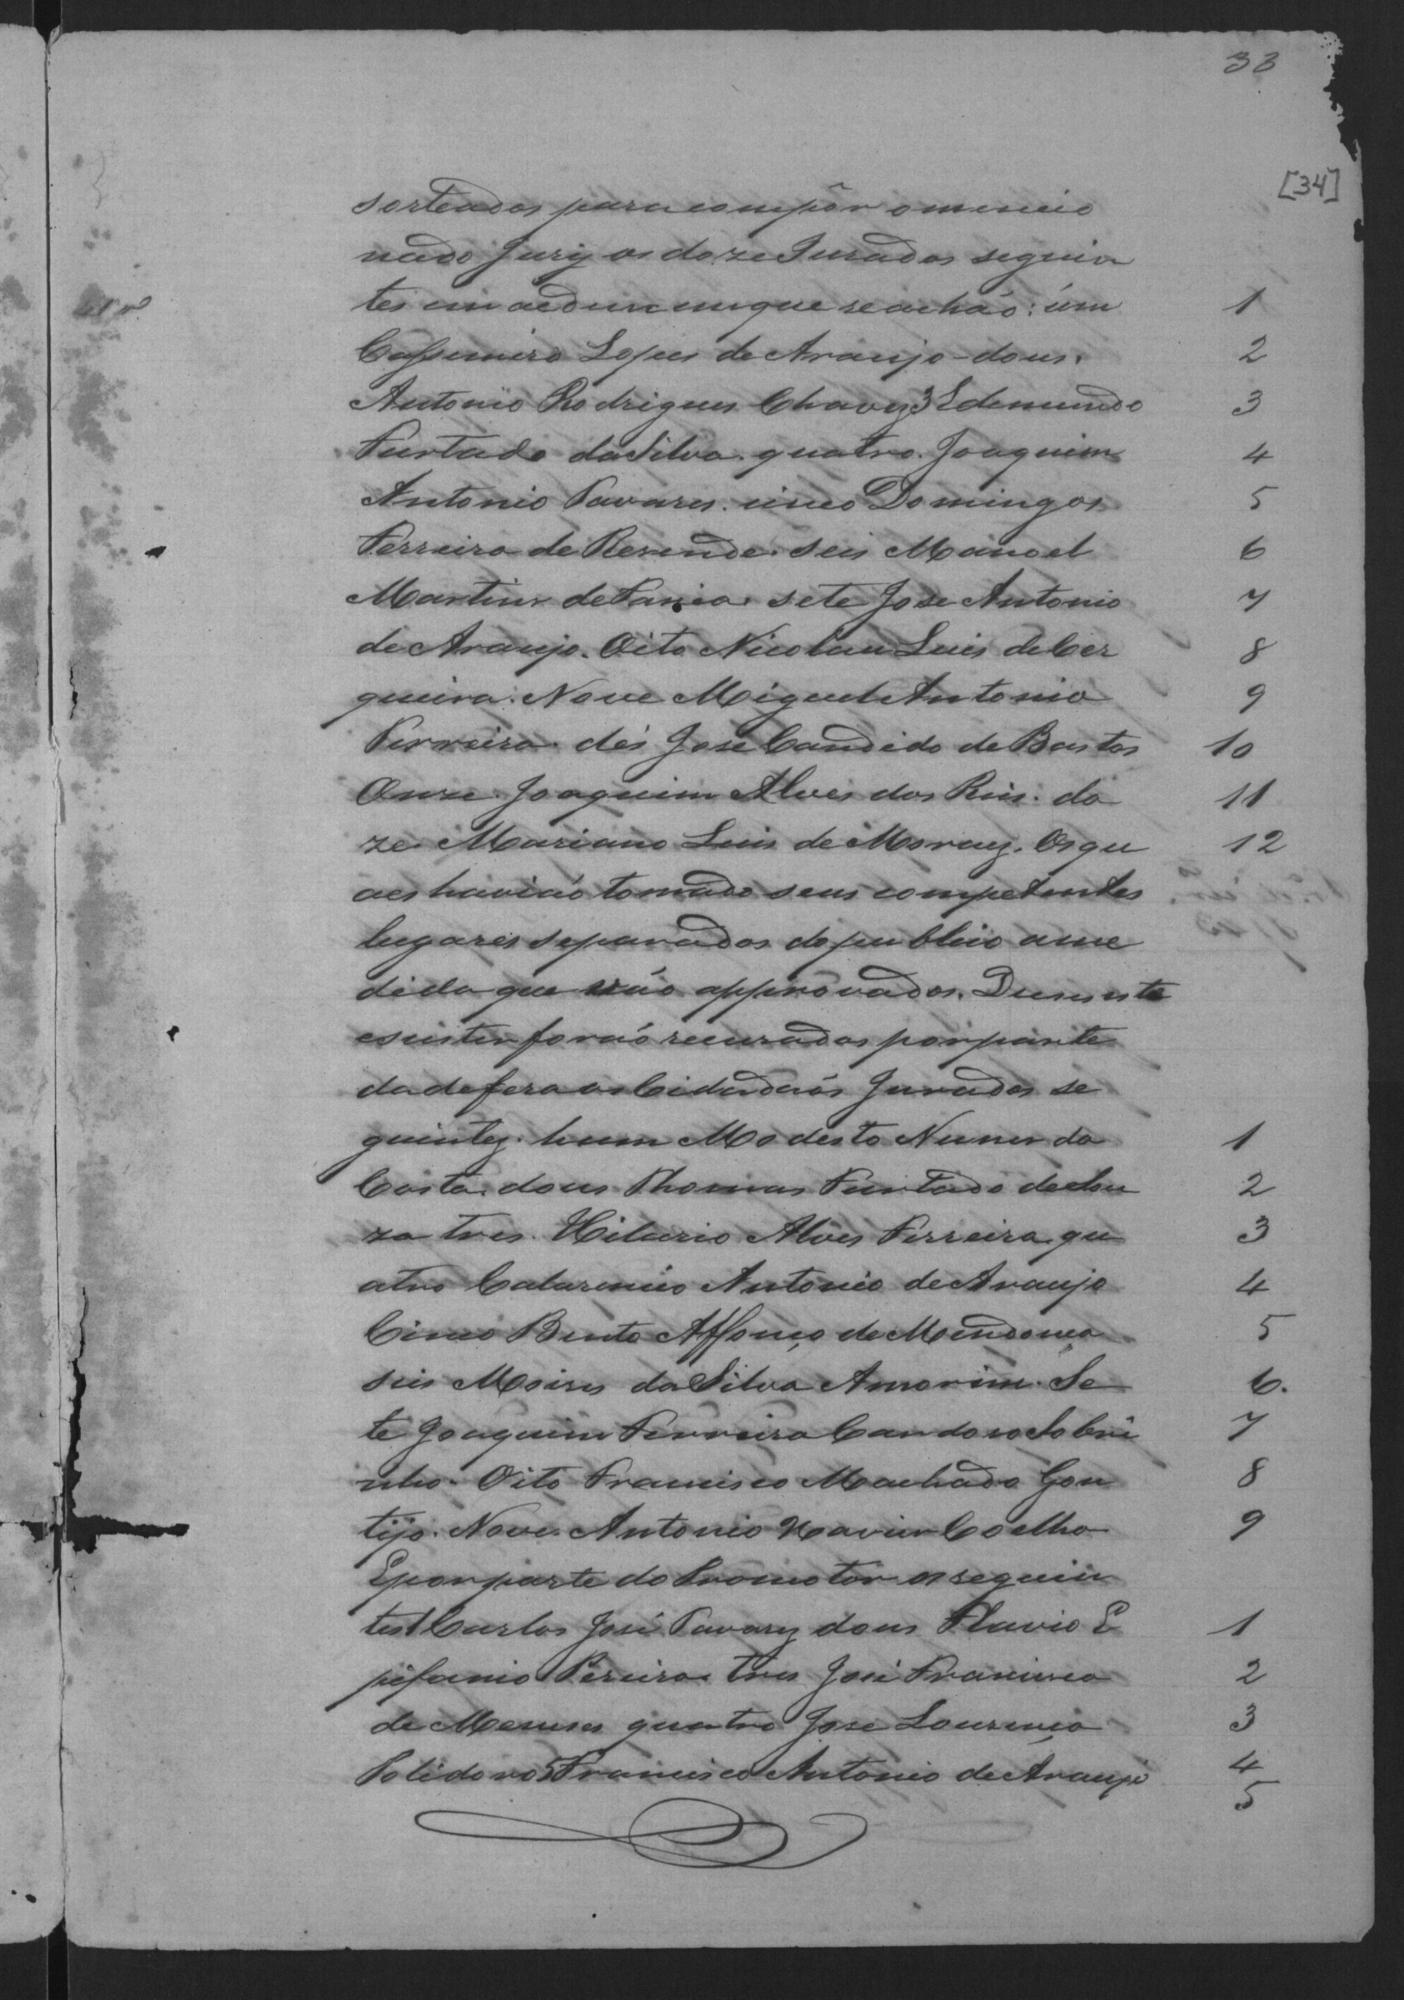 33
[34]
sorteados para compôr o mencio
nado Jury os doze Jurados seguin
tes em que se achão: úm 1
Cassemiro Lopes de Araujo - dous. 2
Antonio Rodrigues Chaves 3 Edemundo 3
Furtado da Silva. quatro. Joaquim 4
Antonio Tavares. cinco Domingos 5
Ferreira de Resende. seis Manoel 6
Martins de Faria. sete Jose Antonio 7
de Araujo. Oito Nicolau Luis de Cer 8
queira. Nove Miguel Antonio 9
Ferreira. dés José Candido de Bastos 10
Onze. Joaquim Alves dos Reis. do 11
ze. Mariano Luis de Moraes. Os qu 12
aes havião tomado seus competentes
lugares separados do publico a me
dida que erão approvados. Durante
forão recuzados por parte
da defeza os Cidadãos Jurados se
guintes. hum Modesto Nunes da 1
Costa. dous Thomas Furtado de Sou 2
za tres. Hilario Alves Ferreira. qu 3
atro Antonio de Araujo 4
Cinco Bento Affonço de Mendonca 5
seis Moises da Silva Amorim. Se 6.
te Joaquim Ferreira Cardoso Sobri 7
nho. Oito Francisco Machado Gon 8
tijo. Nove. Antonio Xavier Coelho 9
E por parte do Promotor os seguin
tes 1 Carlos José Tavares dous Flavio E 1
pifanio Pereira. tres José Francisco 2
de Meneses quatro Jose Lourenço 3
Polidoro 5 Francisco Antonio de Araujo 4
5